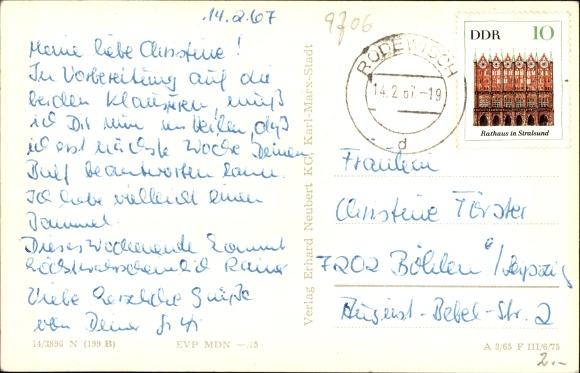 14.2.67
9706
Meine liebe Christine!
In Vorbereitung auf die
beiden Klausuren, muß
ich Dir nun mitteilen, daß
ich erst nächste Woche Deinen
Brief beantworten kann.
Ich habe vielleicht einen
Jammer.
Dieses Wochenende kommt
höchstwahrscheinlich Rainer
Viele herzliche Grüße
von Deiner
14/3896 N (199 B) EVP MDN —.15
Verlag Erhard Neubert KG, Karl-Marx-Stadt
RODEWISCH
14.2.67-19
d
DDR 10
Rathaus in Stralsund
Fräulein
Christine Förster
7202 Böhlen b/Leipzig
August-Bebel-Str. 2
A 3/65 F III/6/75
2.-